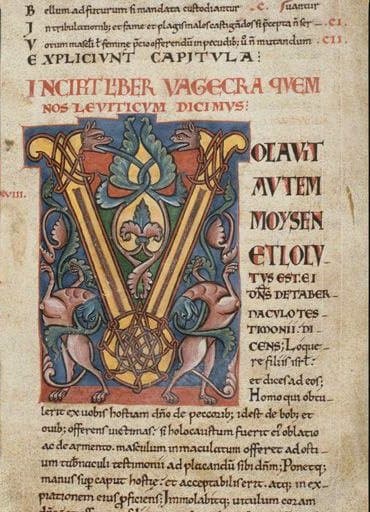 Bellum adfuturum si mandata custodiantur .C. suantur
In tribulationib; et fame et plagis malos castigandos si p̄cepta n̄ ser- .CI.
Vorum masculi ł femine p̄cio offerendū in pecudib; ū n̄ mutandum .CII.
EXPLICIUNT CAPITULA:
INCIPIT LIBER VAGECRA QUEM
NOS LEVITICUM DICIMUS:
VOCAVIT
AUTEM
MOYSEN
ET LOCU-
TUS EST EI
DN̄S DE TABER-
NACULO TES-
TIMONII. DI-
CENS; Loque-
re filiis isrł:
et dices ad eos;
Homo qui obtu-
lerit ex uobis hostiam dn̄o de peccorib; idest de bob; et
ouib; offerens uictimas: si holocaustum fuerit ei oblatio
ac de armento. masculum inmaculatum offeret ad osti-
um tab̄naculi testimonii ad placandū sibi dn̄m; Ponetq;
manus sup̄ caput hostie. et acceptabilis erit. atq; in ex-
piationem eius p̄ficiens; Immolabitq; uitulum coram